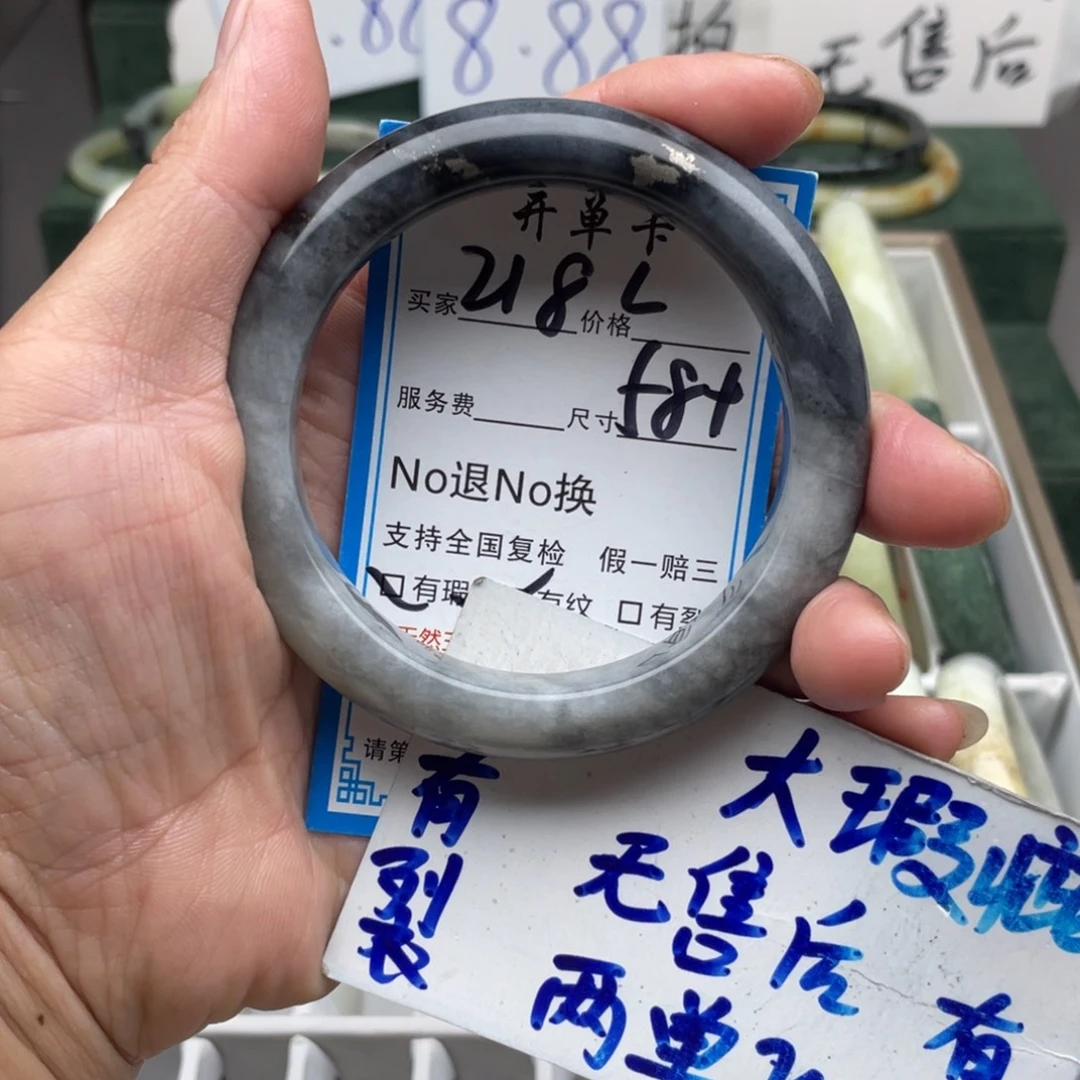 .88
8.88
拍
无售后
弃单卡
买家 2182 价格
服务费 尺寸 58+
No退No换
支持全国复检 假一赔三
口有瑕 有纹 口有裂
天然玉
请第
有裂
大瑕疵
无售后
有
两单